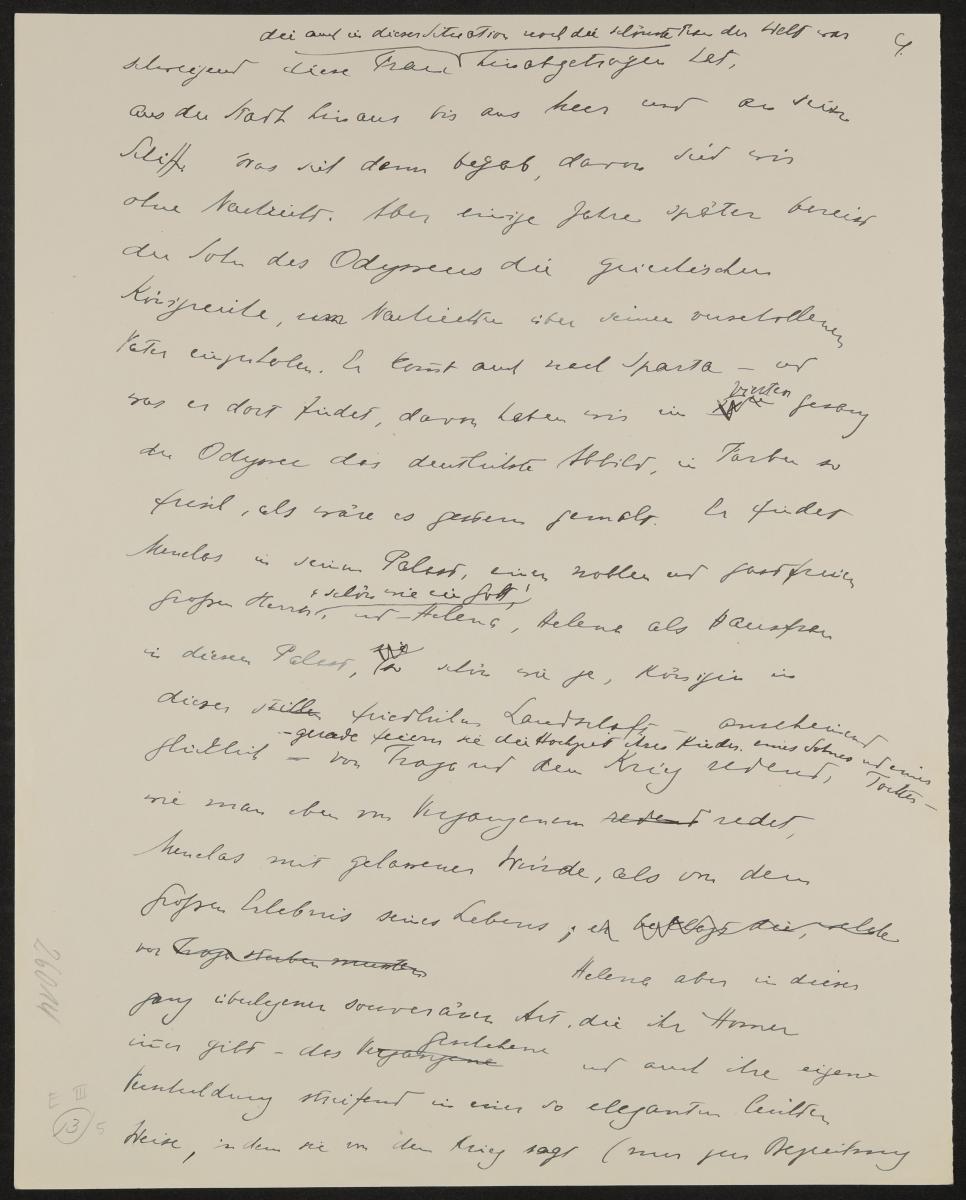 4.
die auch in dieser Situation noch die schönste Frau der Welt war
schweigend diese Frau hinabgetragen hat,
aus der Stadt hinaus bis ans Meer und an sein
Schiff. Was sich dann begab, davon sind wir
ohne Nachricht. Aber einige Jahre später bereist
der Sohn des Odysseus die griechischen
Königreiche, um Nachrichten über seinen verschollenen
Vater einzuholen. Er kommt auch nach Sparta – und
was er dort findet, davon haben wir im vierten Gesang
der Odyssee das deutlichste Abbild, in Farben so
frisch, als wäre es gestern gemalt. Er findet
Menelas in seinem Palast, einen noblen und gastfreien
großen Herrn, „schön wie ein Gott“,
und – Helena, Helena als Hausfrau
in diesem Palast, so schön wie je, Königin in
dieser stillen friedlichen Landschaft, – anscheinend
– gerade feiern sie die Hochzeit ihres Kindes, eines Sohnes und einer Tochter –
glücklich – von Troja und dem Krieg redend,
wie man eben von Vergangenem redend redet,
Menelas mit gelassener Würde, als von dem
großen Erlebnis seines Lebens; er beklagt die, welche
vor Troja sterben mussten Helena aber in dieser
ganz überlegenen souveränen Art, die ihr Homer
immer gibt – das Vergangene Geschehene und auch ihre eigene
Verschuldung streifend in einer so eleganten leichten
Weise, indem sie von dem Krieg sagt (nur zur Begleitung
26014
III
13
5